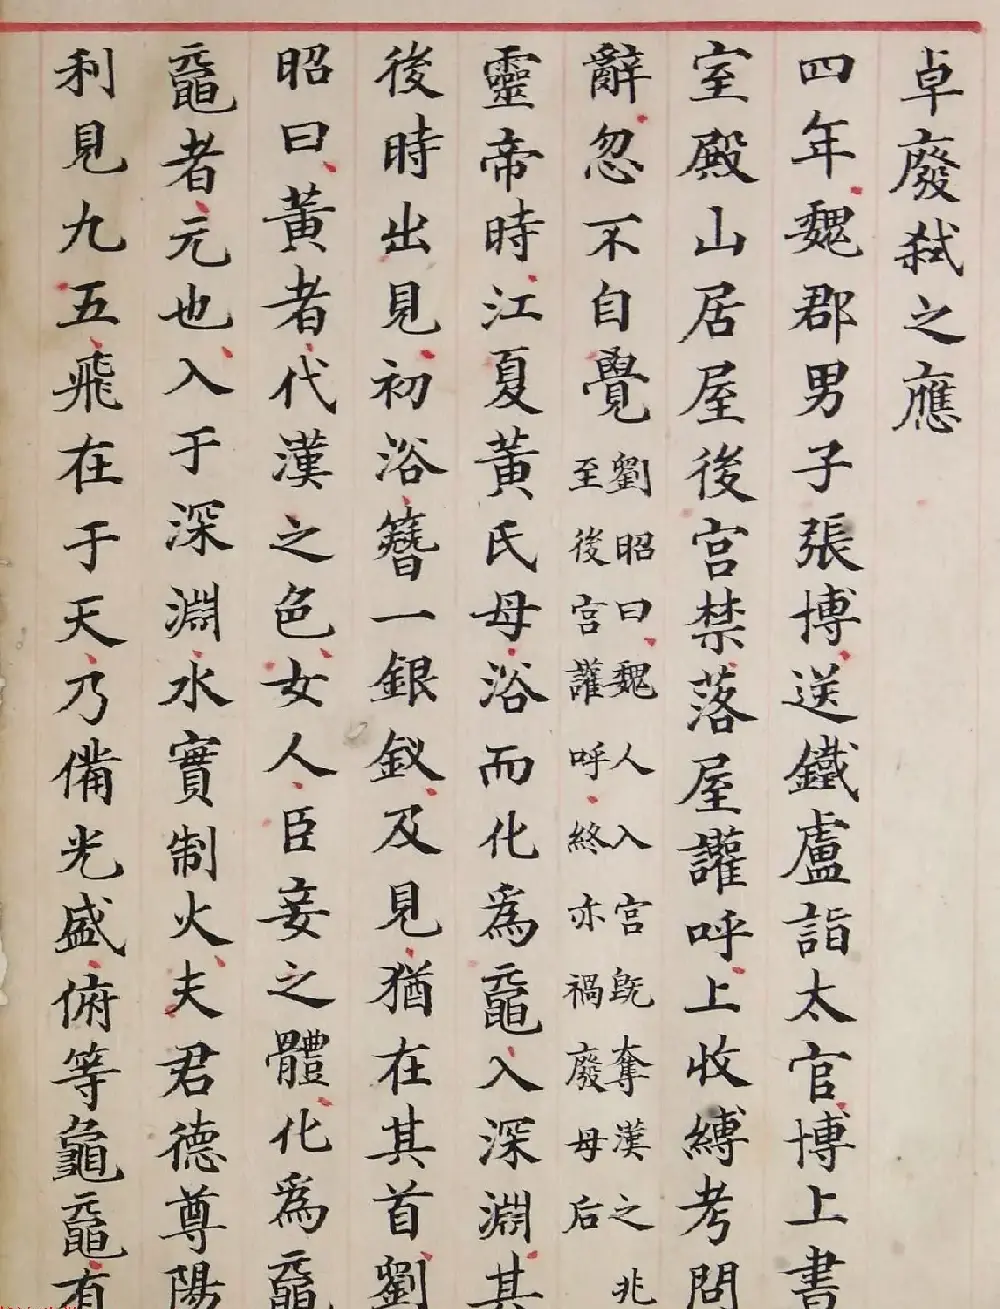 卓廢弑之應
四年魏郡男子張博送鐵盧詣太官博上書
室殿山居屋後宮禁落屋讙呼上收縛考問
辭忽不自覺
劉昭曰魏人入宮既奪漢之兆
至後宮讙呼終亦禍廢母后
靈帝時江夏黃氏母浴而化為黿入深淵其
後時出見初浴簪一銀釵及見猶在其首劉
昭曰黃者代漢之色女人臣妾之體化為黿
黿者元也入于深淵水實制火夫君德尊陽
利見九五飛在于天乃備光盛俯等龜黿有